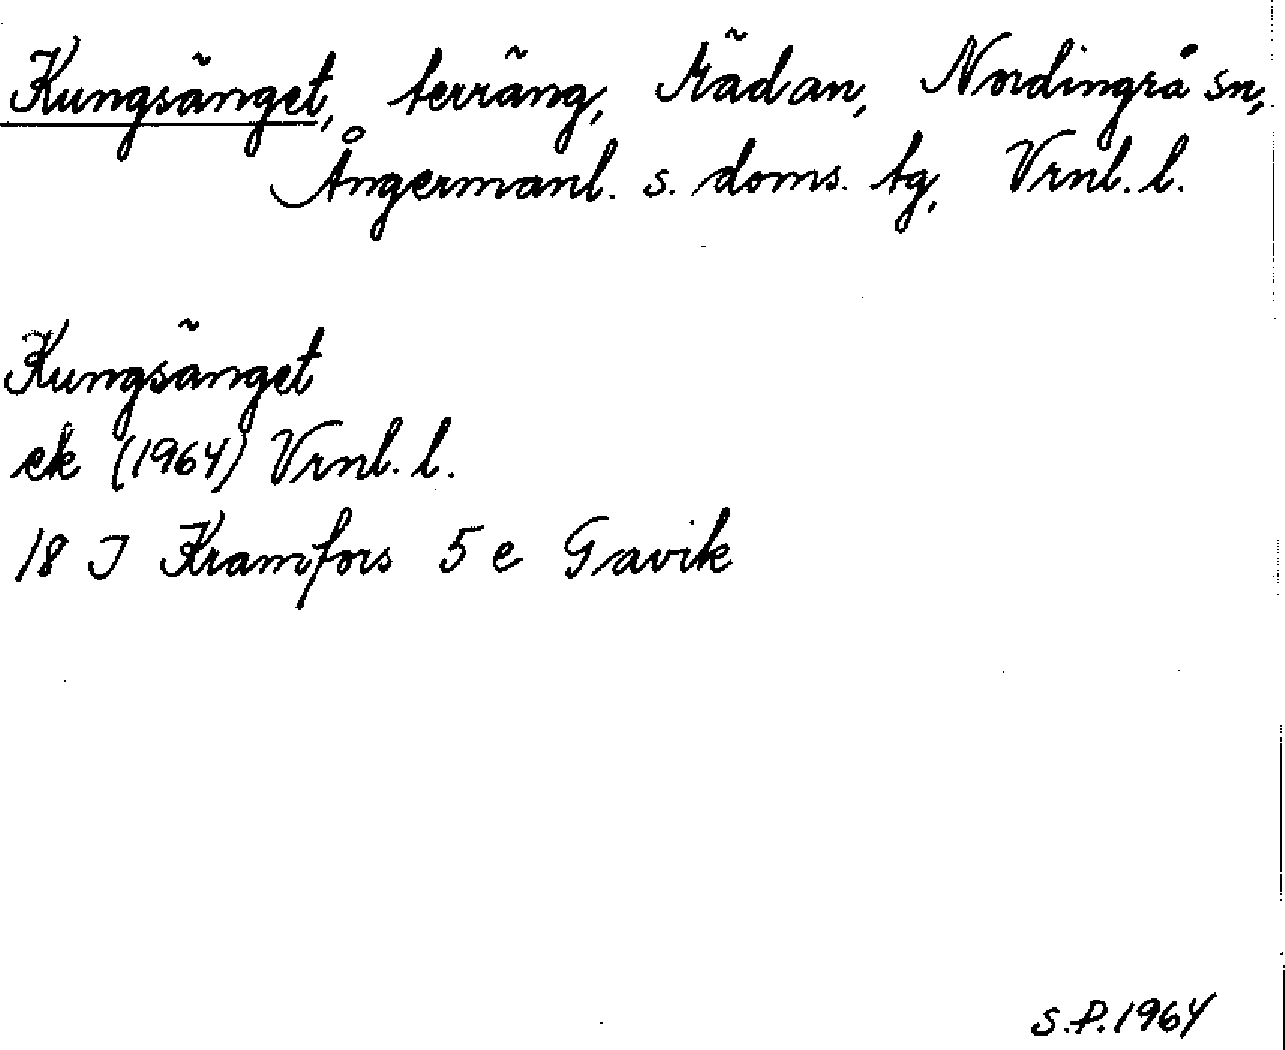 Kungsänget, terräng, Mädan, Nordingrå sn,
Ångermanl. s. doms. tg, Vrnl. l.
Kungsänget
ek (1964) Vrnl. l.
18 J Kramfors 5 e Gavik
S.P. 1964